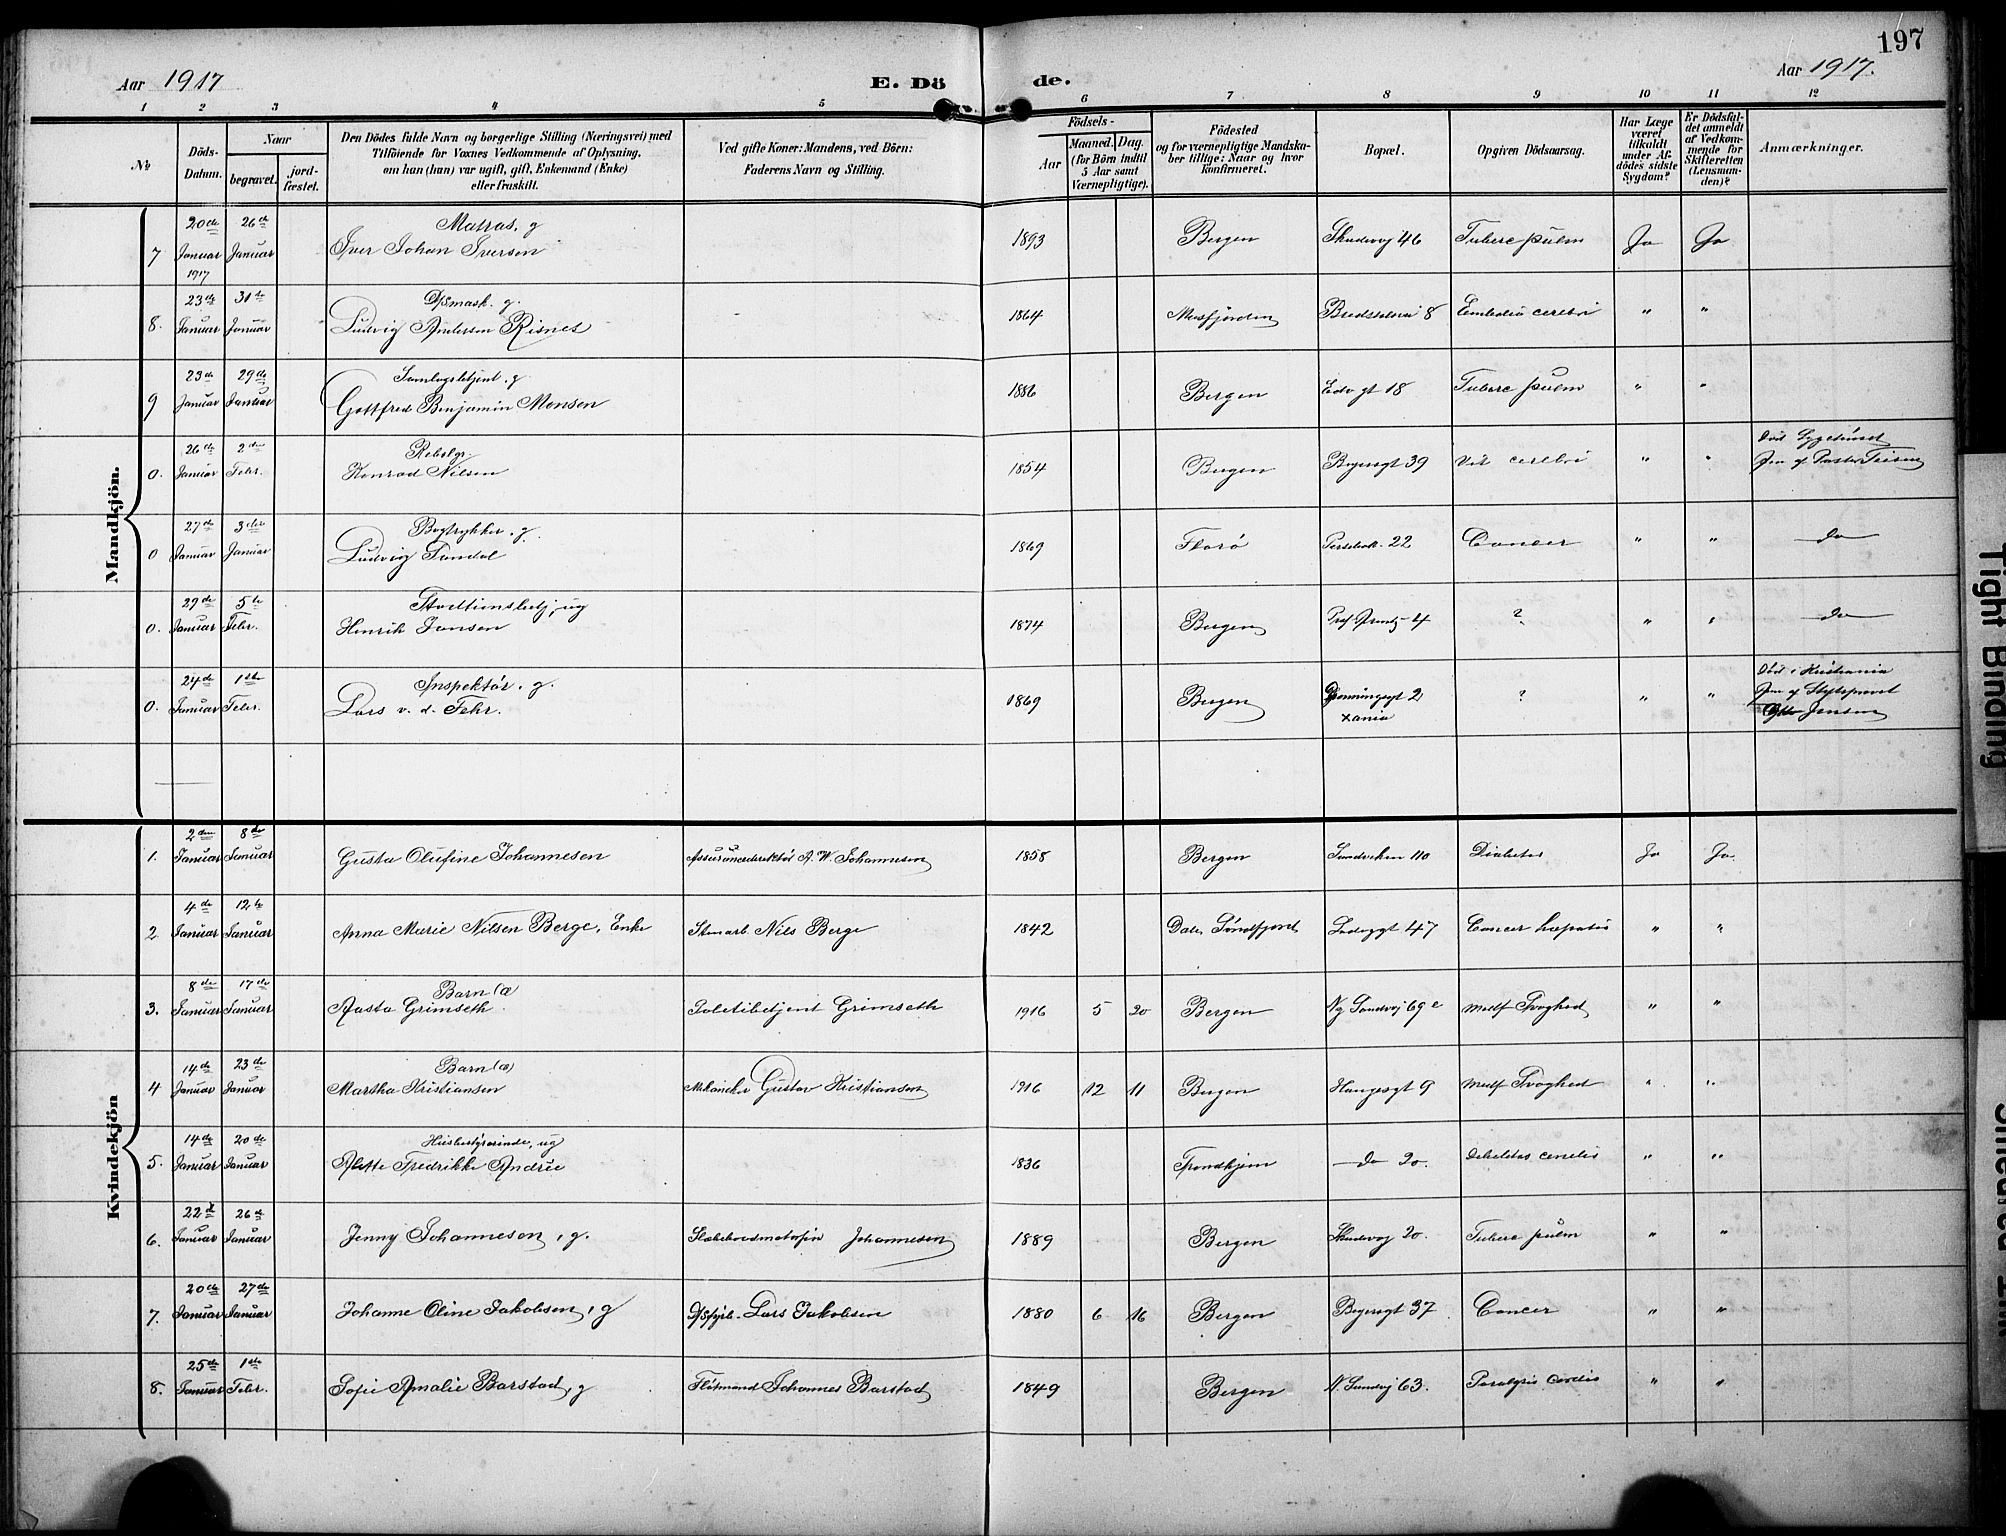 197
Aar 1917 E. Dö de. Aar 1917.
1 2 3 4 5 6 7 8 9 10 11 12
No
Döds-Datum.
Naar
begravet.
jord-fæstet.
Den Dödes fulde Navn og borgerlige Stilling (Næringsvei) med
Tilföiende for Voxnes Vedkommende af Oplysning,
om han (hun) var ugift, gift, Enkemand (Enke)
eller fraskilt.
Ved gifte Koner: Mandens, ved Börn:
Faderens Navn og Stilling.
Födsels-
Aar
Maaned. Dag.
(for Börn indtil
5 Aar samt
Værnepligtige).
Födested
og for værnepligtige Mandska-
ber tillige: Naar og hvor
konfirmeret.
Bopæl.
Opgiven Dödsaarsag.
Har Læge
været
tilkaldt
under Af-
dödes sidste
Sygdom?
Er Dödsfal-
det anmeldt
af Vedkom-
mende for
Skifteretten
(Lensman-
den)?
Anmærkninger.
Mandkjön.
20de 26de Matros, g
7 Januar Januar Iver Johan Iversen 1893 Bergen Skudevj 46 Tuberc pulm Ja Ja
1917
23de 31te g.
8. Januar Januar Ludvig Andersen Risnes 1864 Masfjorden 8 Embolia cerebri " "
23de 29de g
9 Januar Januar Gottfred Benjamin Monsen 1886 Bergen gt 18 Tuberc pulm " "
26de 2den Rebslgr Död Sygehuset
0. Januar Febr. Konrad Nilsen 1854 Bergen 39 Vit cerebri " " Jrn af Pastor
27de 3die Bogtrykker, g.
0 Januar Januar Ludvig Sundal 1869 Florö 22 Cancer " " do
29de 5te Stadtionsbetj, ug
0. Januar Febr. Henrik Jansen 1874 Bergen Prof 4 ? " " do
24de 1ste Inspektör, g. Död i Kristiania
0. Januar Febr. Lars v. d. Fehr. 1869 Bergen 2 ? " " Jrn af
Xania Jensen
Kvindekjön
2den 8de
1. Januar Januar Gusta Olufine Johannesen Assurancedirektör A. W. Johannesen 1858 Bergen Sandviken 110 Diabetes Ja Ja
4de 12te
2 Januar Januar Anna Marie Nilsen Berge, Enke Stenarb. Nils Berge 1842 Dale, Söndfjord 47 Cancer hepatis " "
8de 17de Barn (æ
3. Januar Januar Aasta Grimseth Poletibetjent Grimseth 1916 5 20 Bergen Ny Sandvj 69 e Medf Svaghed " "
14de 23de Barn (æ)
4 Januar Januar Martha Kristiansen Mekaniker Gustav Kristiansen 1916 12 11 Bergen Haugesgt 9 Medf Svaghed " "
14de 20de Husbestyrerinde, ug
5. Januar Januar Alette Fredrikke Andrée 1836 Trondhjem do 20. " "
22de 26de
6. Januar Januar Jenny Johannesen, g. Johannesen 1889 Bergen Skudevj 20. Tuberc pulm " "
20de 27de
7. Januar Januar Johanne Oline Jakobsen, g Lars Jakobsen 1880 6 16 Bergen 37 Cancer " "
25de 1ste
8. Januar Febr. Sofie Amalie Barstad, g Flötmand Johannes Barstad 1849 Bergen N. Sandvj 63. Paralysis cordis " "
Tight Binding